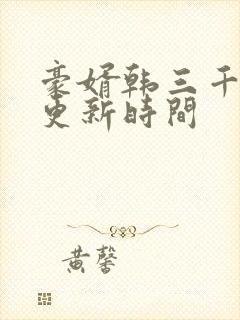 豪婿韩三千
更新時間
黄馨